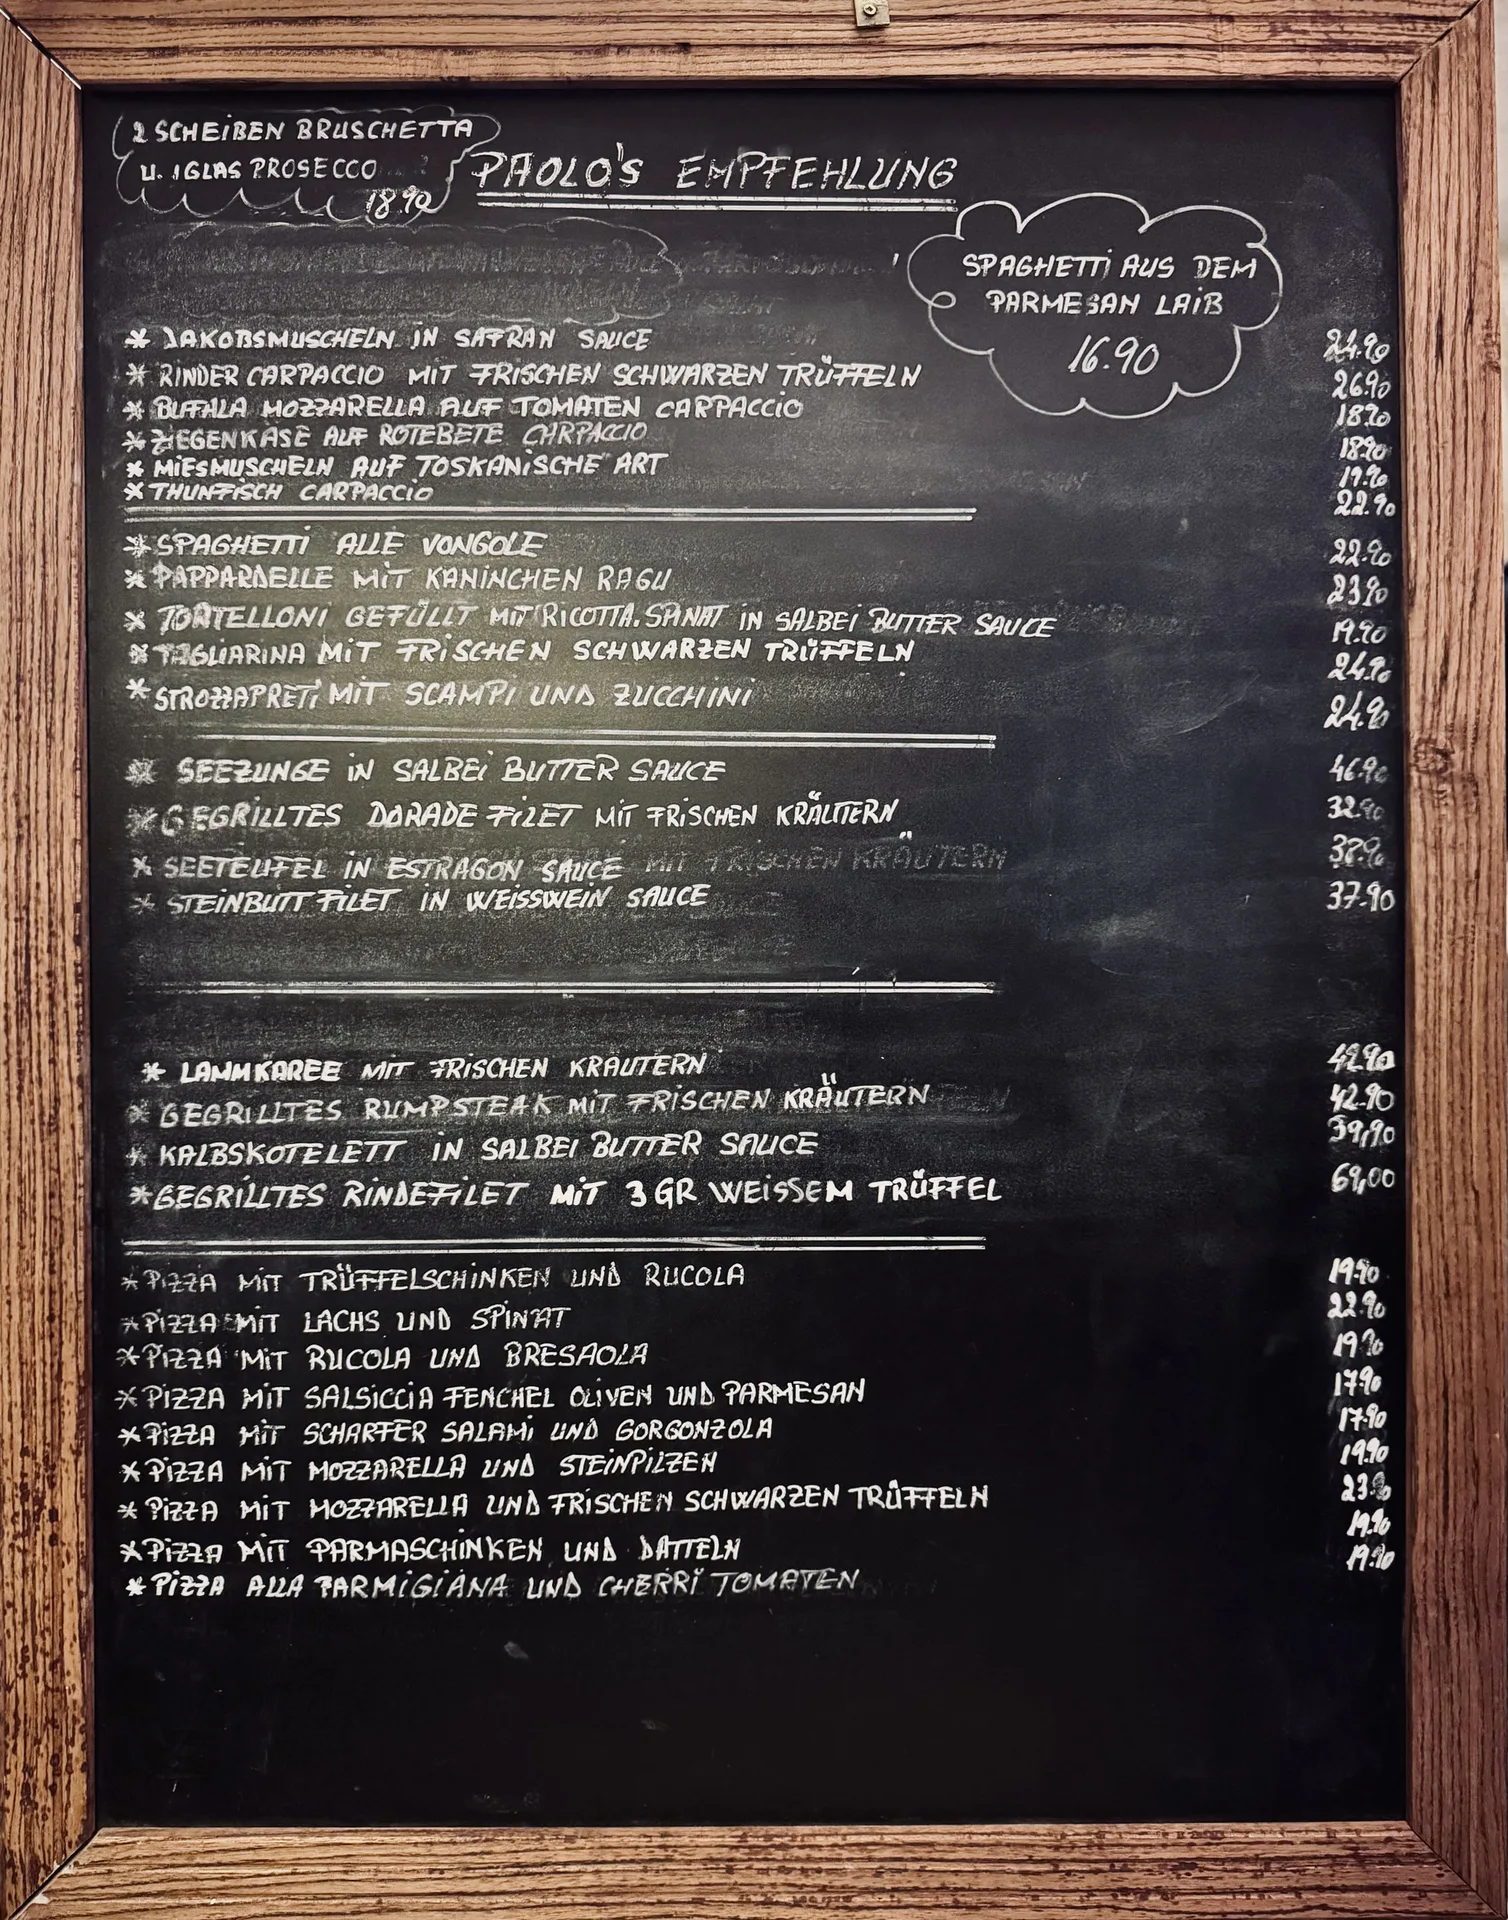 2 SCHEIBEN BRUSCHETTA
U. 1 GLAS PROSECCO
18.90
PAOLO'S EMPFEHLUNG
SPAGHETTI AUS DEM
PARMESAN LAIB
16.90
* JAKOBSMUSCHELN IN SAFRAN SAUCE 24.90
* RINDER CARPACCIO MIT FRISCHEN SCHWARZEN TRÜFFELN 26.90
* BUFALA MOZZARELLA AUF TOMATEN CARPACCIO 18.90
* ZIEGENKÄSE AUF ROTEBETE CARPACCIO 18.90
* MIESMUSCHELN AUF TOSKANISCHE ART 19.90
* THUNFISCH CARPACCIO 22.90
* SPAGHETTI ALLE VONGOLE 22.90
* PAPPARDELLE MIT KANINCHEN RAGU 23.90
* TORTELLONI GEFÜLLT MIT RICOTTA.SPINAT IN SALBEI BUTTER SAUCE 19.90
* TAGLIARINA MIT FRISCHEN SCHWARZEN TRÜFFELN 24.90
* STROZZAPRETI MIT SCAMPI UND ZUCCHINI 24.90
* SEEZUNGE IN SALBEI BUTTER SAUCE 46.90
* GEGRILLTES DORADE FILET MIT FRISCHEN KRÄUTERN 32.90
* SEETEUFEL IN ESTRAGON SAUCE 38.90
* STEINBUTT FILET IN WEISSWEIN SAUCE 37.90
* LAMMKAREE MIT FRISCHEN KRÄUTERN
* GEGRILLTES RUMPSTEAK MIT FRISCHEN KRÄUTERN 42.90
* KALBSKOTELETT IN SALBEI BUTTER SAUCE 39,90
* GEGRILLTES RINDEFILET MIT 3 GR WEISSEM TRÜFFEL 69,00
* PIZZA MIT TRÜFFELSCHINKEN UND RUCOLA 19.90
* PIZZA MIT LACHS UND SPINAT 22.90
* PIZZA MIT RUCOLA UND BRESAOLA 19.90
* PIZZA MIT SALSICCIA FENCHEL OLIVEN UND PARMESAN 17.90
* PIZZA MIT SCHARFER SALAMI UND GORGONZOLA 17.90
* PIZZA MIT MOZZARELLA UND STEINPILZEN 19.90
* PIZZA MIT MOZZARELLA UND FRISCHEN SCHWARZEN TRÜFFELN 23.90
* PIZZA MIT PARMASCHINKEN UND DATTELN 19.90
* PIZZA ALLA PARMIGIANA UND CHERRI TOMATEN 19.90